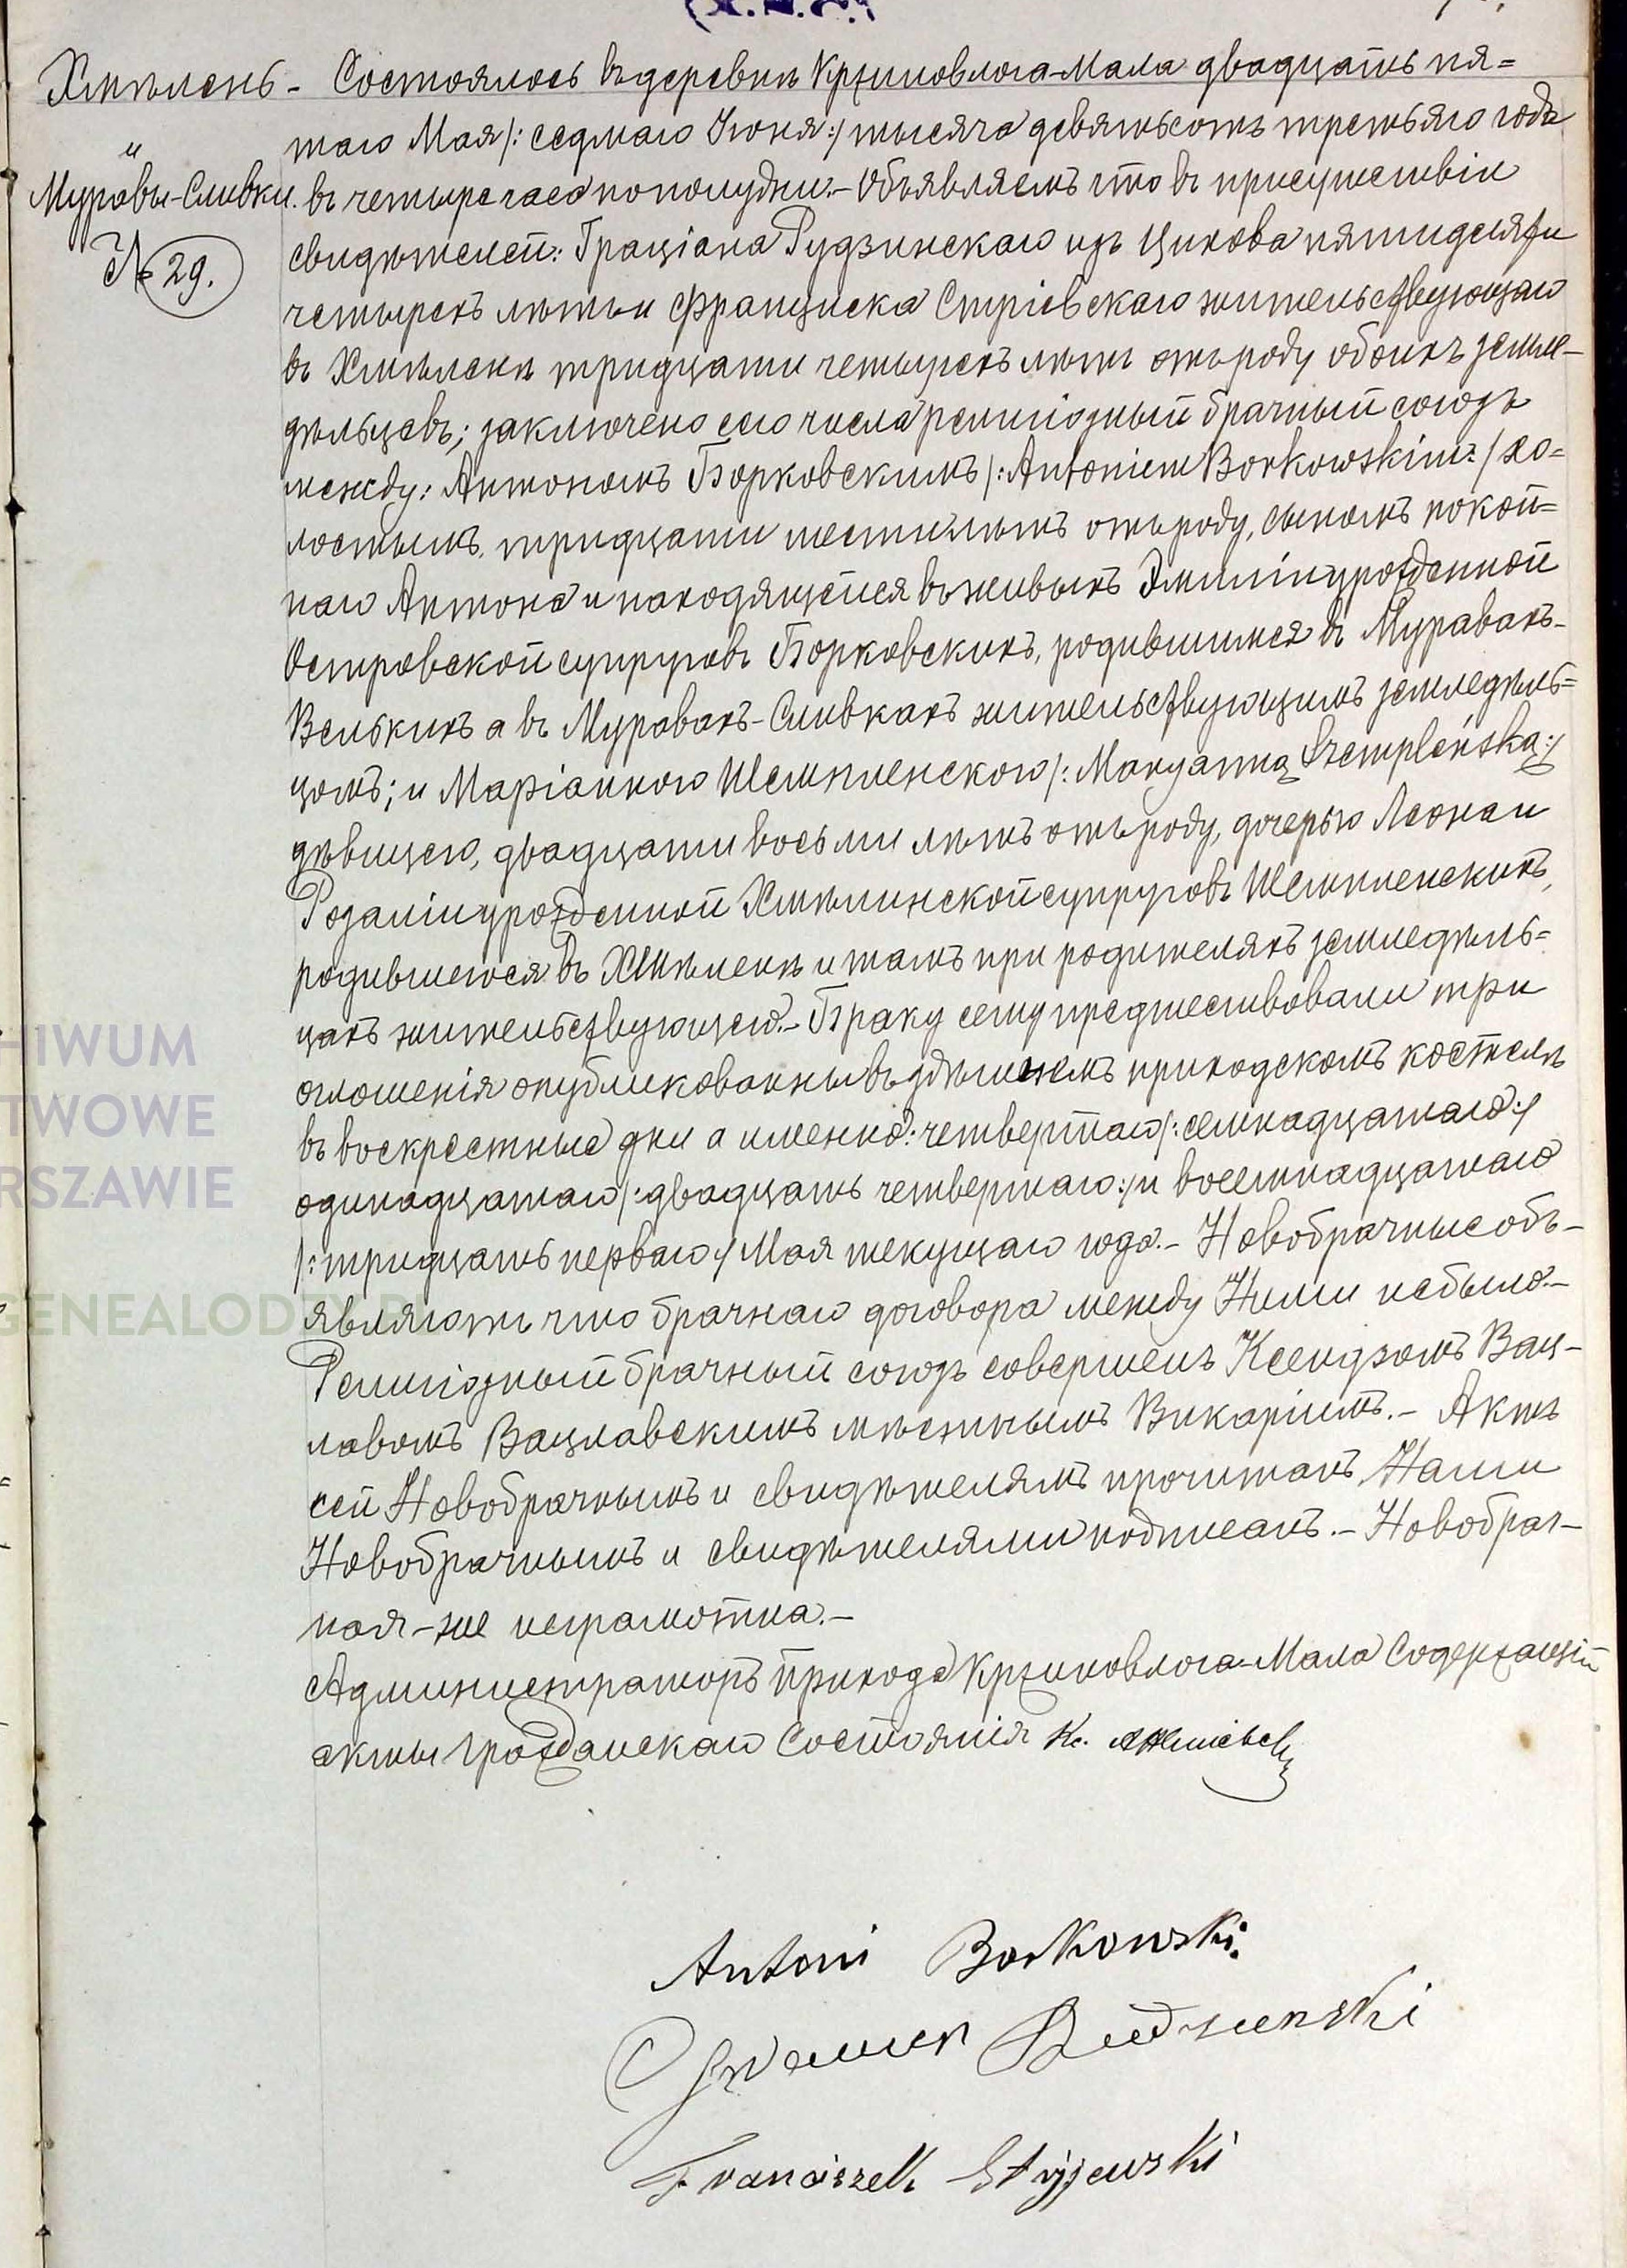 Хмѣлень - Состоялось въ деревнѣ Крживовлога-Мала двадцать пя=
и
таго Мая /: седмаго Іюня :/ тысяча девятьсотъ третьяго года
Муравы-Сливки. въ четыре часа по полудни. - Объявляемъ что въ присутствіи
№ 29. свидѣтелей: Граціана Рудзинскаго изъ Цихова пятидесяти
четырехъ лѣтъ и Франциска Стріевскаго жительствующаго
въ Хмѣленѣ тридцати четырехъ лѣтъ отъ роду обоихъ земле-
дѣльцевъ; заключено сего числа религіозный брачный союзъ
между: Антономъ Борковскимъ /: Antoniem Borkowskim :/ хо=
лостымъ, тридцати шести лѣтъ отъ роду, сыномъ покой=
наго Антона и находящейся въ живыхъ Эмиліи урожденной
Островской супруговъ Борковскихъ, родившимся въ Муравахъ-
Велькихъ а въ Муравахъ-Сливкахъ жительствующимъ земледѣль=
цомъ; и Маріанною Шемпленскою /: Maryanną Szempleńską :/
дѣвицею, двадцати восьми лѣтъ отъ роду, дочерью Леона и
Розаліи урожденной Хмѣлинской супруговъ Шемпленскихъ,
родившеюся въ Хмѣленѣ и тамъ при родителяхъ земледѣль=
цахъ жительствующею. - Браку сему предшествовали три
оглошенія опубликованны въ здѣшнемъ приходскомъ костелѣ
въ воскрестные дни а именно: четвертаго /: семнадцатаго :/
одинадцатаго /: двадцать четвертаго :/ и восемнадцатаго
/: тридцать перваго :/ Мая текущаго года. - Новобрачные объ-
являютъ что брачнаго договора между Ними небыло. -
Религіозный брачный союзъ совершенъ Ксендзомъ Вац-
лавомъ Вацлавскимъ мѣстнымъ Викаріимъ. - Актъ
сей Новобрачнымъ и свидѣтелямъ прочитанъ, Нами
Новобрачнымъ и свидѣтелями подписанъ. - Новобрач-
ная-же неграмотна. -
Администраторъ Прихода Крживовлога-Мала Содержащій
акты гражданскаго Состоянія Кс.
Antoni Borkowski.
Rudzienski
Franciszek Stryjewski
ARCHIWUM
WARSZAWIE